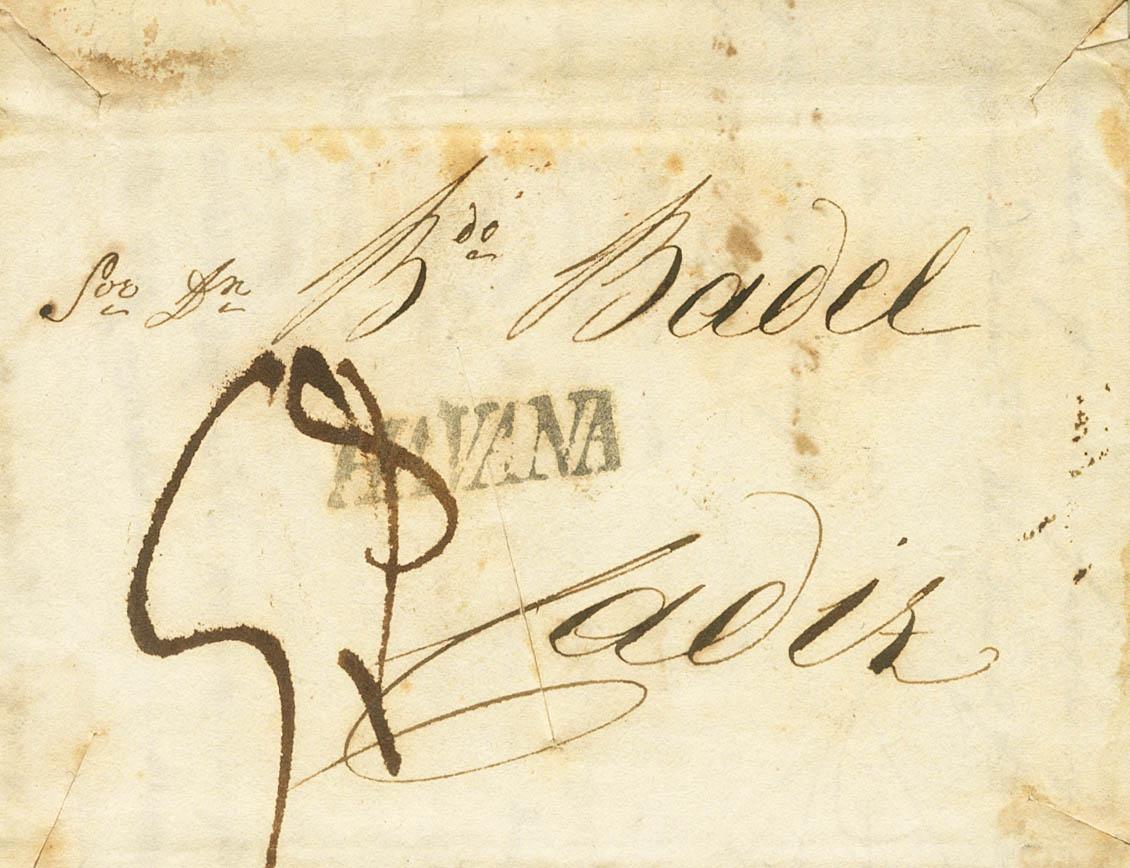 Sor Dn B.do Badel
HAVANA
Cadiz